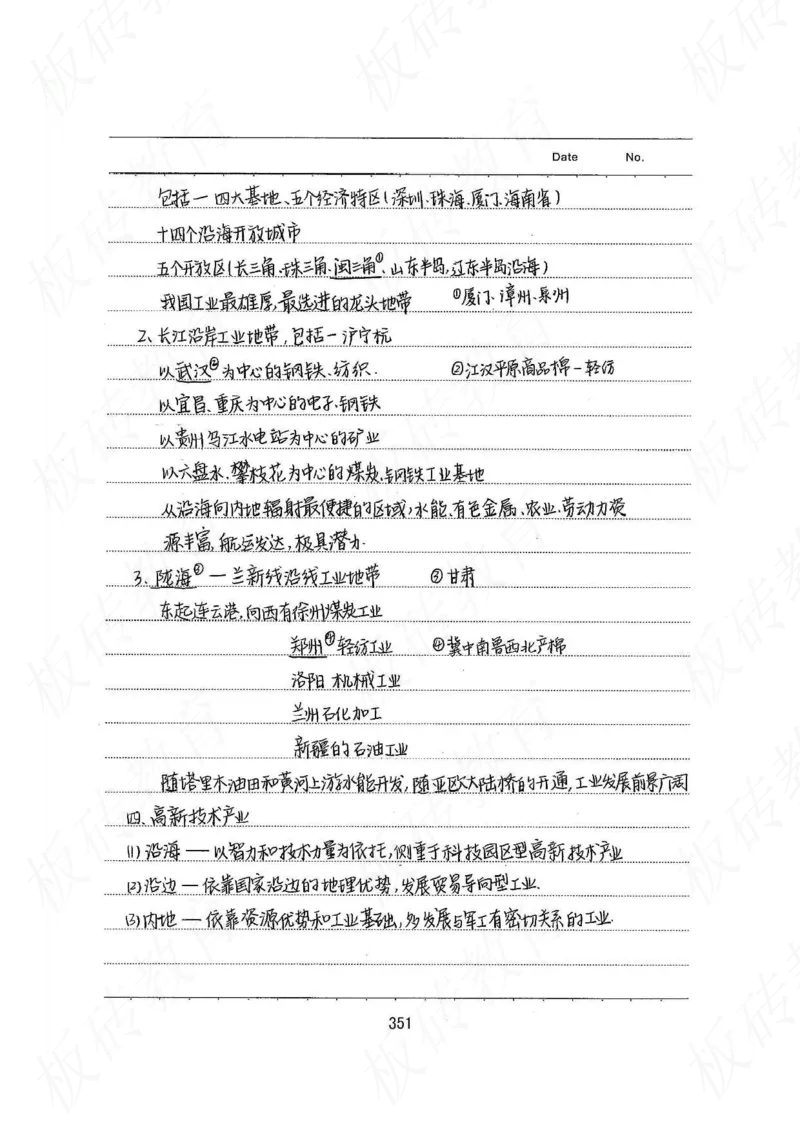 Date No.
包括一 四大基地、五个经济特区(深圳、珠海、厦门、海南省)
十四个沿海开放城市
五个开放区(长三角、珠三角、闽三角①、山东半岛,辽东半岛沿海)
我国工业最雄厚,最先进的龙头地带 ①厦门、漳州、泉州
2、长江沿岸工业地带,包括一沪宁杭
以武汉②为中心的钢铁、纺织. ②江汉平原商品棉一轻纺
以宜昌、重庆为中心的电子、钢铁
以贵州乌江水电站为中心的矿业
以六盘水、攀枝花为中心的煤炭、钢铁工业基地
从沿海向内地辐射最便捷的区域,水能、有色金属、农业、劳动力资
源丰富,航运发达,极具潜力.
3、陇海②一兰新线沿线工业地带 ③甘肃
东起连云港,向西有徐州煤炭工业
郑州④轻纺工业 ④冀中南鲁西北产棉
洛阳 机械工业
兰州石化加工
新疆的石油工业
随塔里木油田和黄河上游水能开发,随亚欧大陆桥的开通,工业发展前景广阔
四、高新技术产业
(1)沿海 — 以智力和技术力量为依托,侧重于科技园区型高新技术产业
(2)沿边 — 依靠国家沿边的地理优势,发展贸易导向型工业.
(3)内地 — 依靠资源优势和工业基础,多发展与军工有密切关系的工业.
351
板砖教育